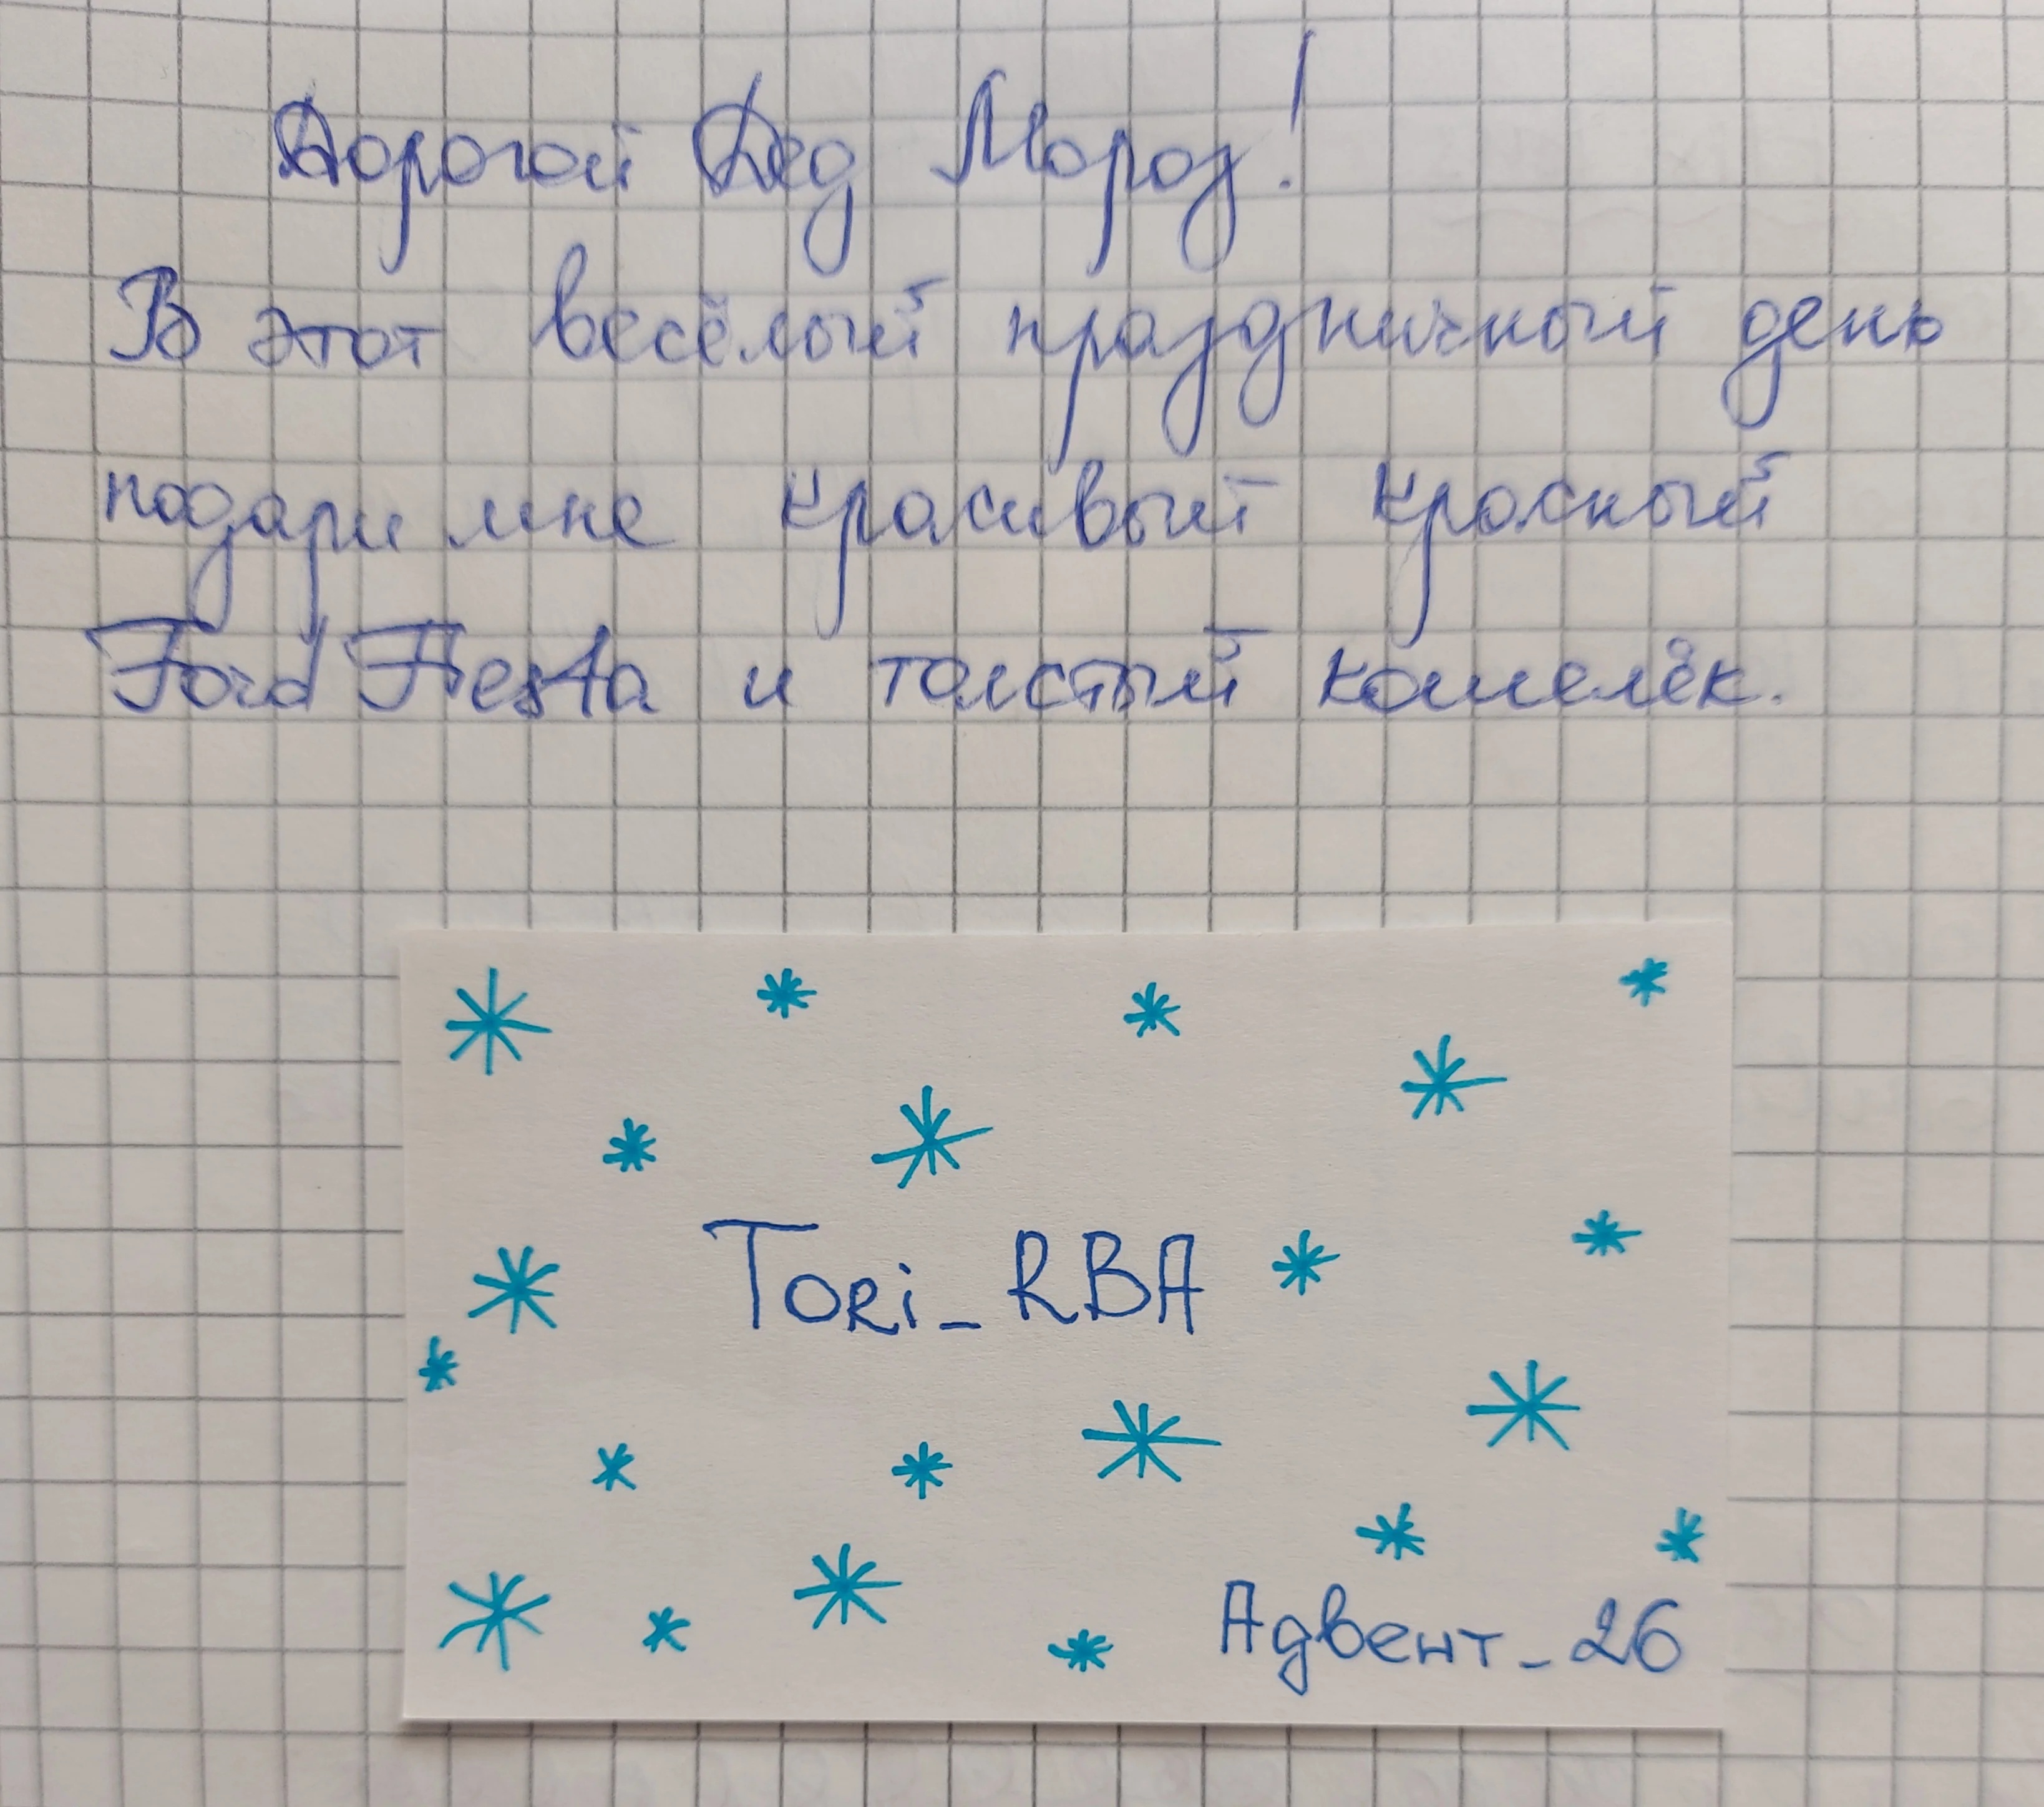 Дорогой Дед Мороз!
В этот весёлый праздничный день
подари мне красивый красный
Ford Fiesta и толстый кошелёк.
Tori_RBA
Адвент_26